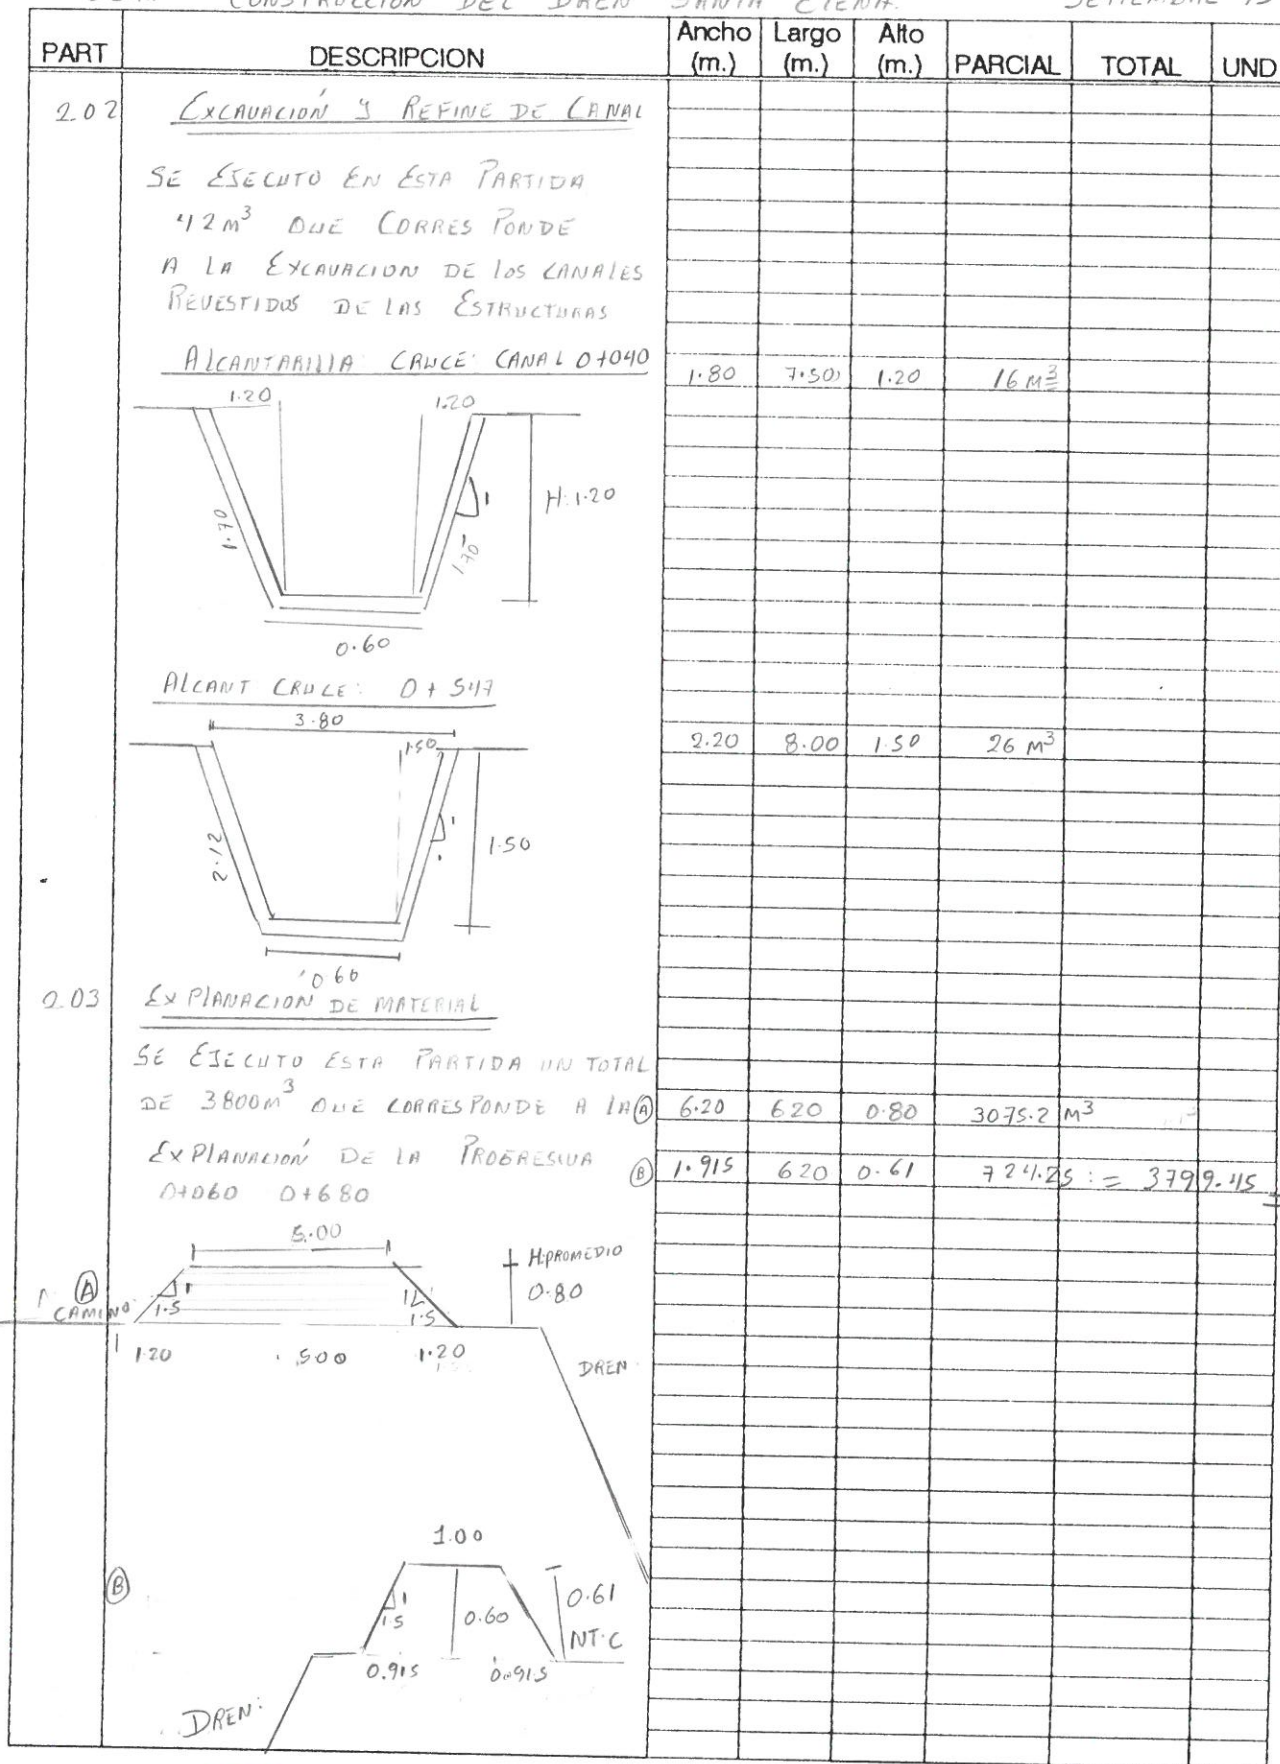 CONSTRUCCION DEL DREN SANTA ELENA. SETIEMBRE
PART DESCRIPCION Ancho (m.) Largo (m.) Alto (m.) PARCIAL TOTAL UND
2.02 EXCAVACIÓN Y REFINE DE CANAL
SE EJECUTO EN ESTA PARTIDA
42 m³ QUE CORRESPONDE
A LA EXCAVACION DE LOS CANALES
REVESTIDOS DE LAS ESTRUCTURAS
ALCANTARILLA CRUCE: CANAL 0+040 1.80 7.50 1.20 16 M³
1.20 1.20
1.70 1.70 1 H: 1.20
0.60
ALCANT CRUCE: 0+547
3.80
1.50 2.20 8.00 1.50 26 M³
2.12 1 1.50
0.60
2.03 EXPLANACION DE MATERIAL
SE EJECUTO ESTA PARTIDA UN TOTAL
DE 3800m³ QUE CORRESPONDE A LA (A) 6.20 620 0.80 3075.2 M³
EXPLANACIÓN DE LA PROGRESIVA (B) 1.915 620 0.61 724.25 := 3799.45
0+060 0+680
5.00
(A) 1 1.5 1 1.5 H.PROMEDIO
CAMINO 0.80
1.20 5.00 1.20 DREN
1.00
(B) 1 1.5 0.60 0.61
NT.C
0.915 0.915
DREN: